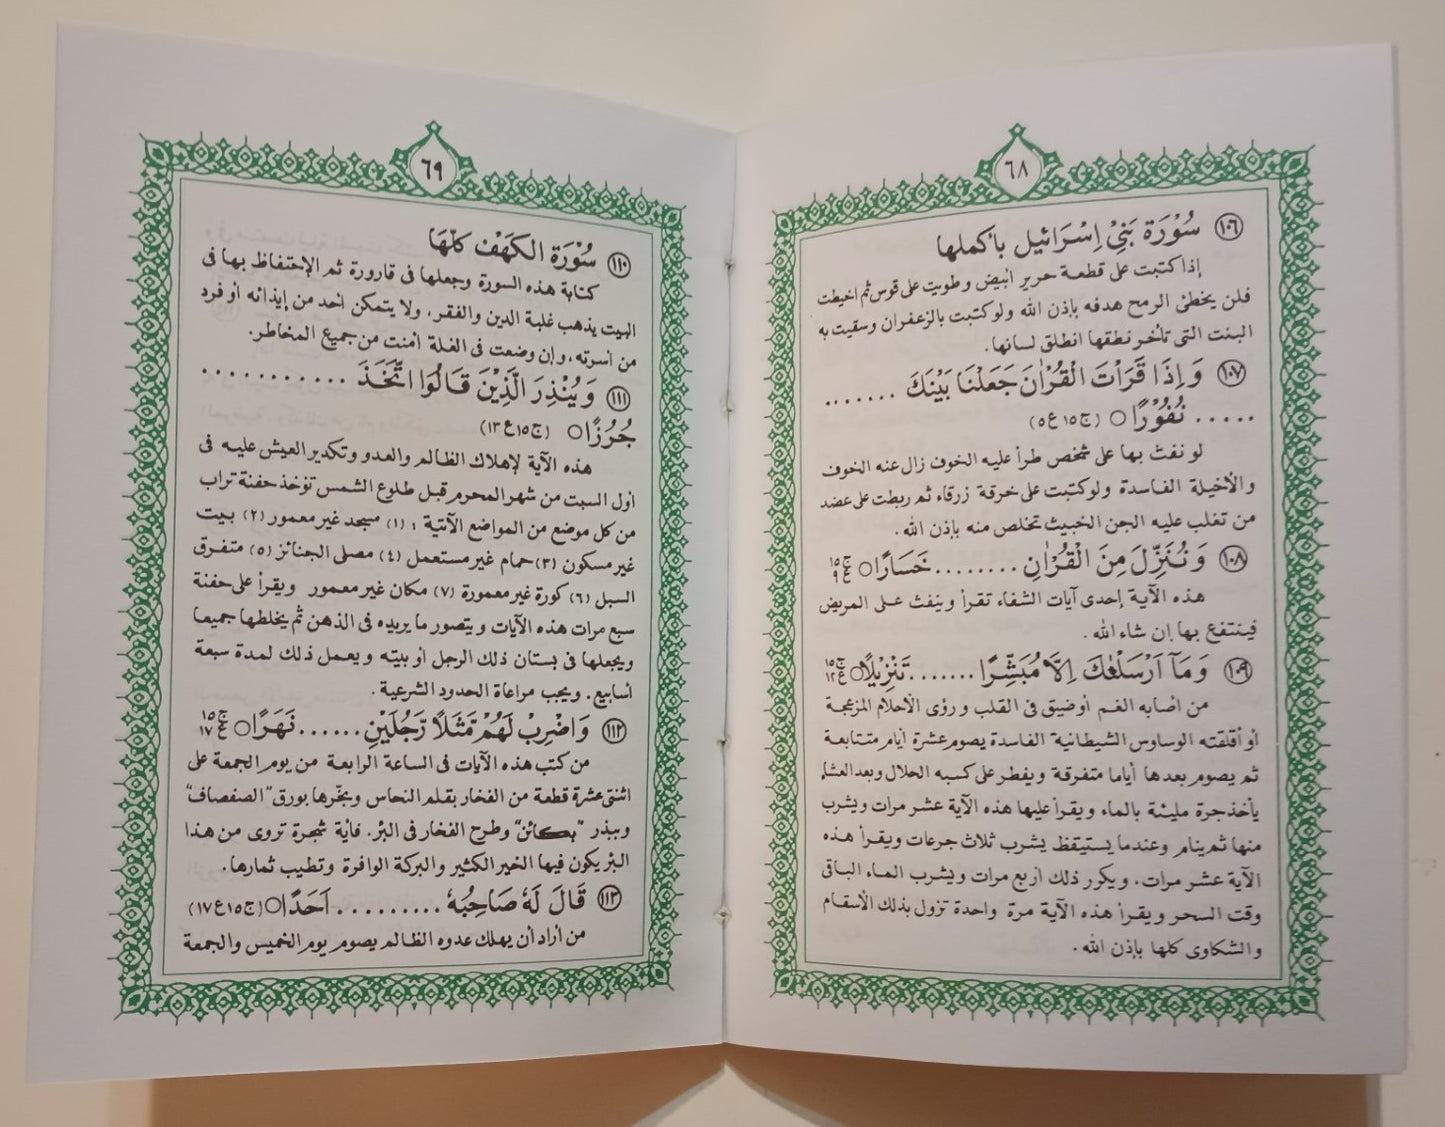 ٦٨
١٠٦ سُوْرَة بَنِيْ اِسْرَائيل بأكملها
إذا كتبت على قطعة حرير أبيض وطويت على قوس ثم اخيطت
فلن يخطئ الرمح هدفه بإذن الله ولو كتبت بالزعفران وسقيت به
البنت التى تأخر نطقها انطلق لسانها.
١٠٧ وَاِذَا قَرَأتَ الْقُرْاٰنَ جَعَلْنَا بَيْنَكَ .......
..... نُفُوْرًا ○ (ج١٥ ع٥)
لو نفث بها على شخص طرأ عليه الخوف زال عنه الخوف
والأخيلة الفاسدة ولو كتبت على خرقة زرقاء ثم ربطت على عضد
من تغلب عليه الجن الخبيث تخلص منه بإذن الله.
١٠٨ وَنُنَزِّلُ مِنَ الْقُرْاٰنِ ........ خَسَارًا ○ ج١٥ ع٩
هذه الآية إحدى آيات الشفاء تقرأ وينفث على المريض
فينتفع بها إن شاء الله.
١٠٩ وَمَآ اَرْسَلْنٰكَ اِلَّا مُبَشِّرًا ....... تَنْزِيْلًا ○ ج١٥ ع١٢
من أصابه الغم أوضيق فى القلب ورؤى الأحلام المزعجة
أو أقلقته الوساوس الشيطانية الفاسدة يصوم عشرة أيام متتابعة
ثم يصوم بعدها أياما متفرقة ويفطر على كسبه الحلال وبعد العشاء
يأخذ جرة مليئة بالماء ويقرأ عليها هذه الآية عشر مرات ويشرب
منها ثم ينام وعندما يستيقظ يشرب ثلاث جرعات ويقرأ هذه
الآية عشر مرات. ويكرر ذلك أربع مرات ويشرب الماء الباقى
وقت السحر ويقرأ هذه الآية مرة واحدة تزول بذلك الأسقام
والشكاوى كلها بإذن الله.
٦٩
١١٠ سُوْرَة الكَهَفْ كلْهَا
كتابة هذه السورة وجعلها فى قارورة ثم الإحتفاظ بها فى
البيت يذهب غلبة الدين والفقر، ولا يتمكن أحد من إيذائه أو فرد
من أسرته، وإن وضعت فى الغلة أمنت من جميع المخاطر.
١١١ وَيُنْذِرَ الَّذِيْنَ قَالُوا اتَّخَذَ ...........
جُرُزًا ○ (ج١٥ ع١٣)
هذه الآية لإهلاك الظالم والعدو وتكدير العيش عليه فى
أول السبت من شهر المحرم قبل طلوع الشمس تؤخذ حفنة تراب
من كل موضع من المواضع الآتية : (١) مسجد غير معمور (٢) بيت
غير مسكون (٣) حمام غير مستعمل (٤) مصلى الجنائز (٥) متفرق
السبل (٦) كورة غير معمورة (٧) مكان غير معمور ويقرأ على حفنة
سبع مرات هذه الآيات ويتصور ما يريده فى الذهن ثم يخلطها جميعا
ويجعلها فى بستان ذلك الرجل أو بيته ويعمل ذلك لمدة سبعة
أسابيع. ويجب مراعاة الحدود الشرعية.
١١٢ وَاضْرِبْ لَهُمْ مَّثَلًا رَّجُلَيْنِ ...... نَهَرًا ○ ج١٥ ع١٧
من كتب هذه الآيات فى الساعة الرابعة من يوم الجمعة على
اثنتى عشرة قطعة من الفخار بقلم النحاس وبخرها بورق "الصفصاف"
وببذر وطرح الفخار فى البئر. فأية شجرة تروى من هذا
البئر يكون فيها الخير الكثير والبركة الوافرة وتطيب ثمارها.
١١٣ قَالَ لَهٗ صَاحِبُهٗ .......... اَحَدًا ○ (ج١٥ ع١٧)
من أراد أن يهلك عدوه الظالم يصوم يوم الخميس والجمعة